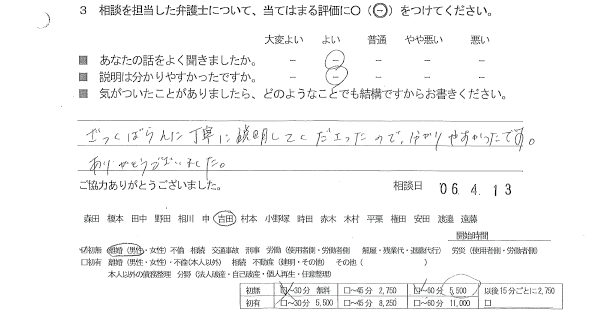 3 相談を担当した弁護士について、当てはまる評価に〇（⊖）をつけてください。
大変よい よい 普通 やや悪い 悪い
■ あなたの話をよく聞きましたか。 － － － － －
■ 説明は分かりやすかったですか。 － － － － －
■ 気がついたことがありましたら、どのようなことでも結構ですからお書きください。
ざっくばらんに丁寧に説明してくださったので、分かりやすかったです。
ありがとうございました。
ご協力ありがとうございました。 相談日 '06. 4. 13
森田 榎本 田中 野田 相川 申 吉田 村本 小野塚 時田 赤木 木村 平栗 権田 安田 渡邉 遠藤
開始時間
☑初無 離婚（男性・女性）不倫 相続 交通事故 刑事 労働（使用者側・労働者側 解雇・残業代・退職代行） 労災（使用者側・労働者側）
□初有 離婚（男性・女性）不倫（本人以外） 相続 不動産（建明・その他） その他（ ）
本人以外の債務整理 分野（法人破産・自己破産・個人再生・任意整理）
初無 □～30分 無料 □～45分 2,750 □～60分 5,500 以後15分ごとに2,750
初有 □～30分 5,500 □～45分 8,250 □～60分 11,000 □